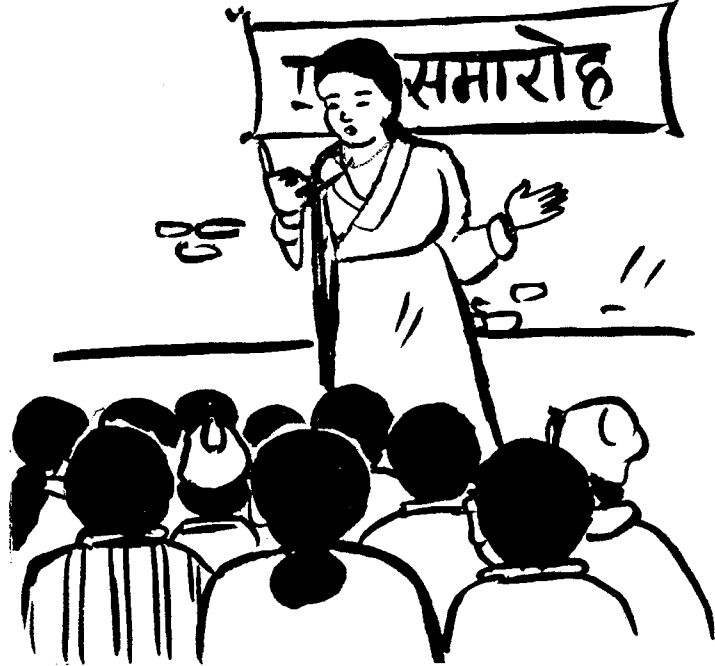 समारोह